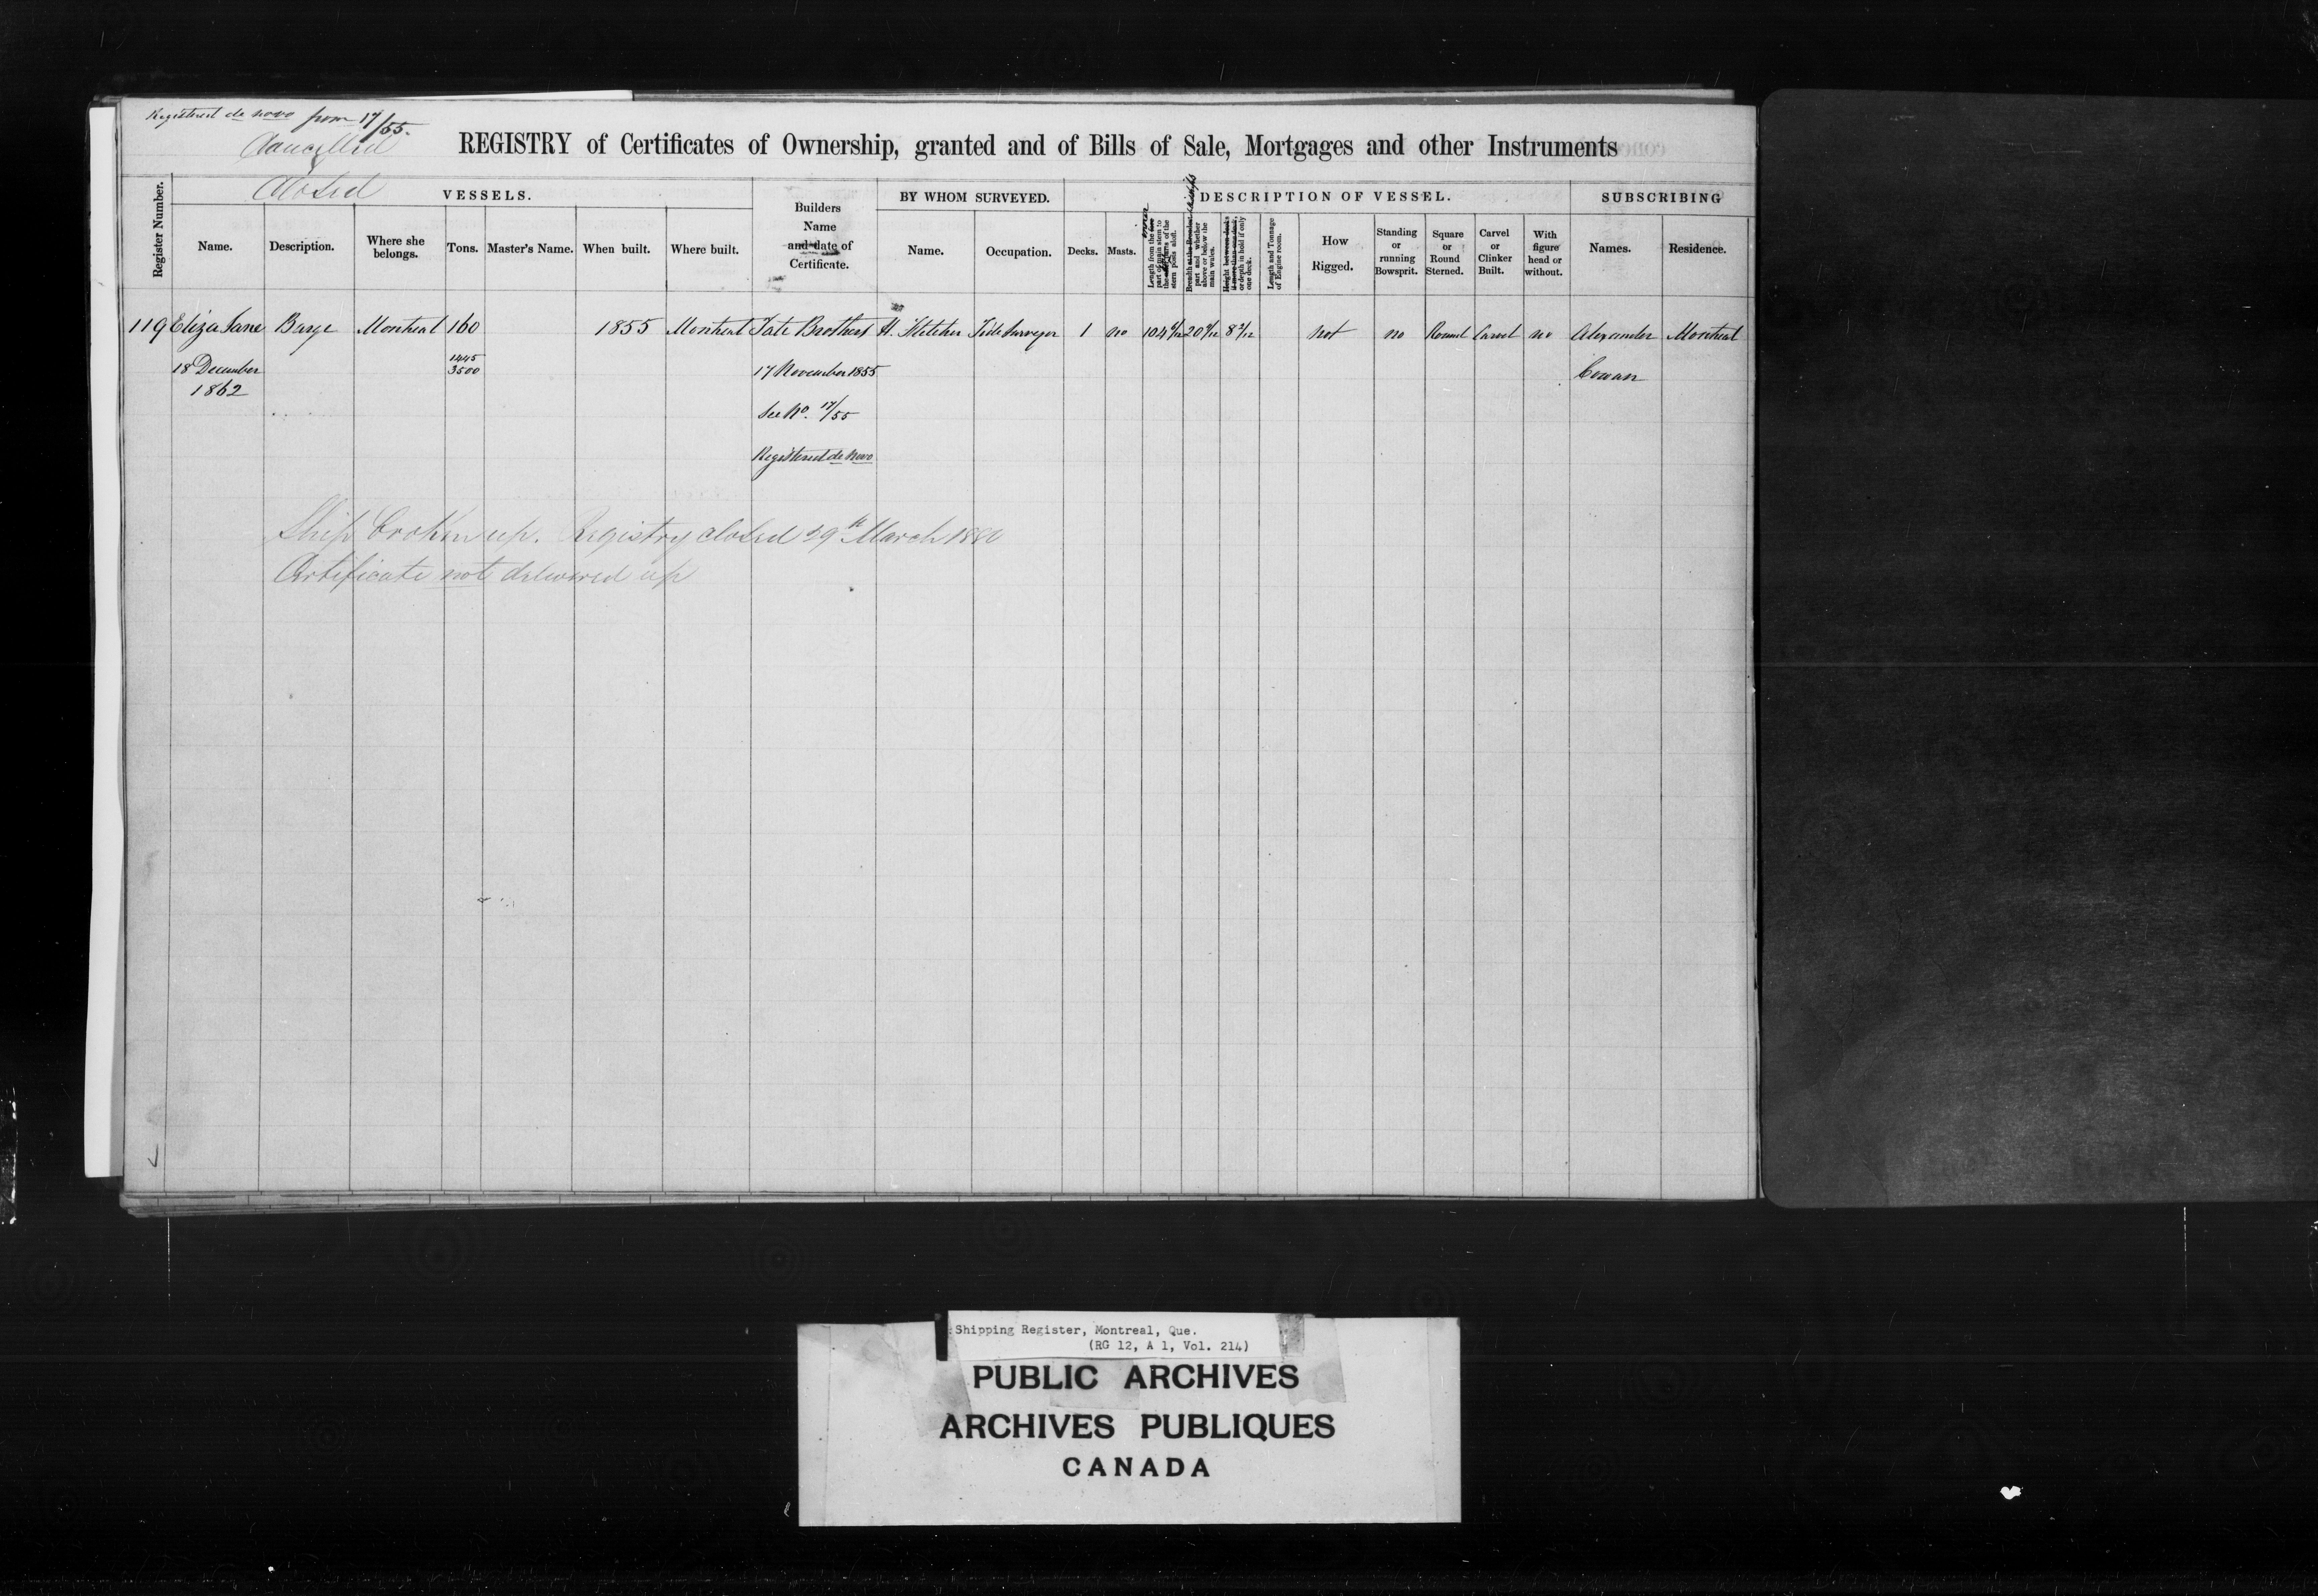 Registered de novo from 17/55.
Cancelled
Closed
REGISTRY of Certificates of Ownership, granted and of Bills of Sale, Mortgages and other Instruments
Register Number.
VESSELS.
Name.
Description.
Where she belongs.
Tons.
Master's Name.
When built.
Where built.
Builders
Name
and date of
Certificate.
BY WHOM SURVEYED.
Name.
Occupation.
DESCRIPTION OF VESSEL.
Decks.
Masts.
Length and Tonnage of Engine room.
How
Rigged.
Standing or running Bowsprit.
Square or Round Sterned.
Carvel or Clinker Built.
With figure head or without.
SUBSCRIBING
Names.
Residence.
119 Eliza Jane Barge Montreal 160 1855 Montreal Tate Brothers H. Fletcher Tide Surveyor 1 no not no Round Carvel no Alexander Montreal
18 December 1445/3500 17 November 1855 Cowan
1862
See No. 17/55
Registered de Novo
Ship broken up. Registry closed 29th March 1880
Certificate not delivered up
Shipping Register, Montreal, Que.
(RG 12, A 1, Vol. 214)
PUBLIC ARCHIVES
ARCHIVES PUBLIQUES
CANADA